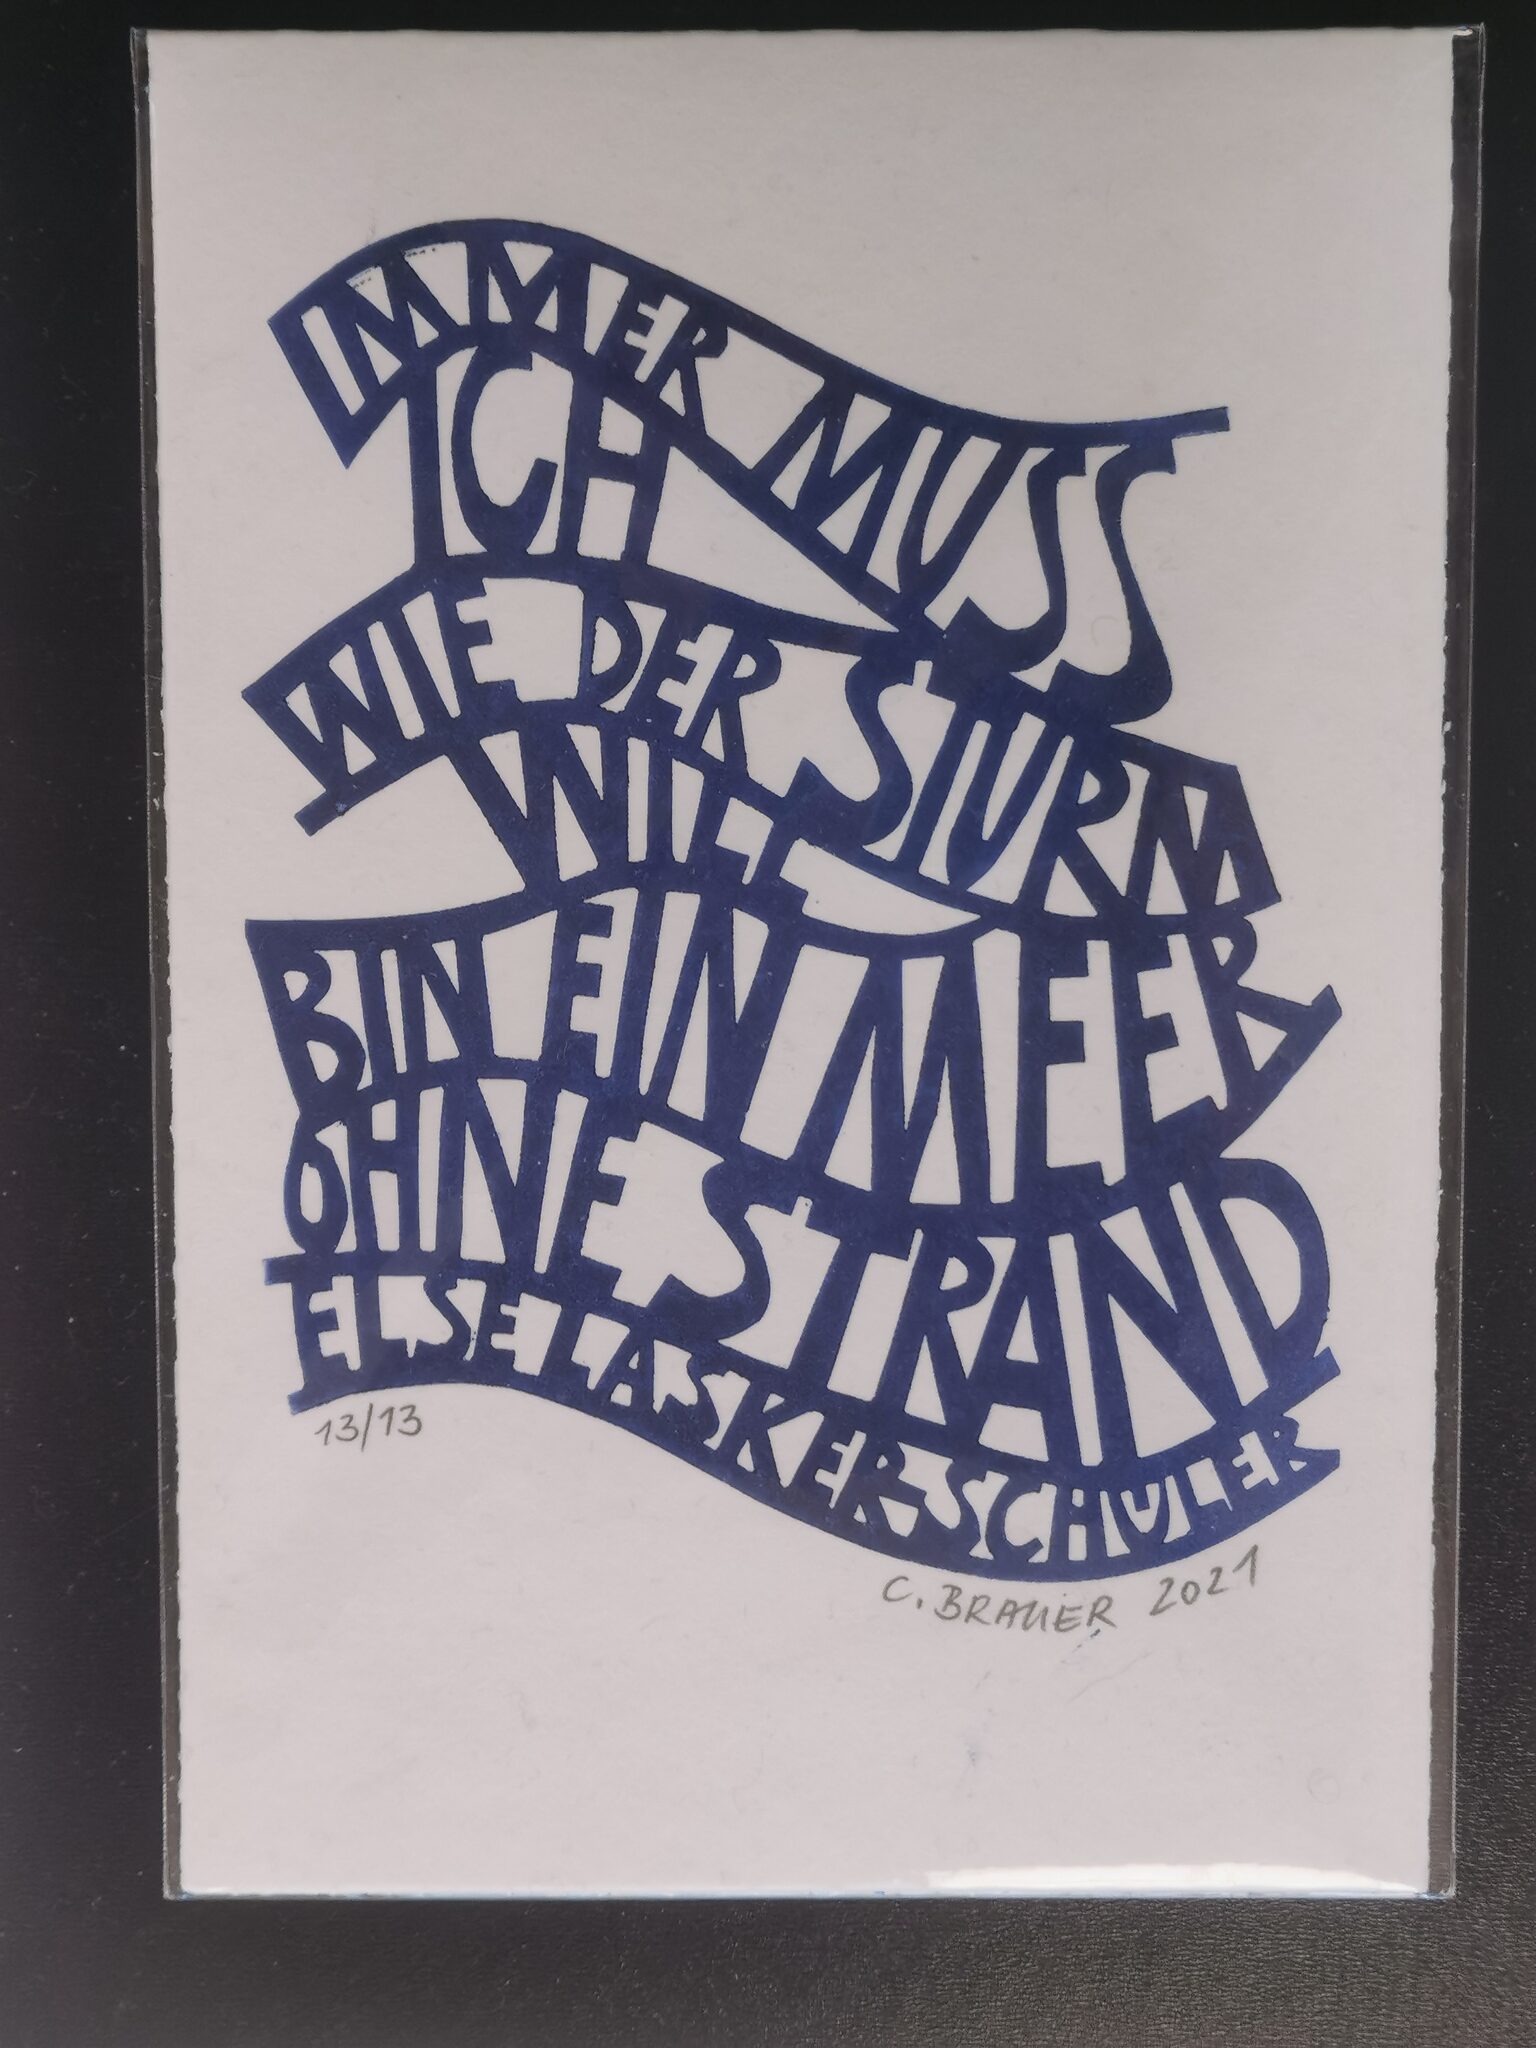 IMMER MUSS
ICH
WIE DER STURM
WILL
BIN EIN MEER
OHNE STRAND
ELSE LASKER-SCHÜLER
13/13
C. BRAUER 2021